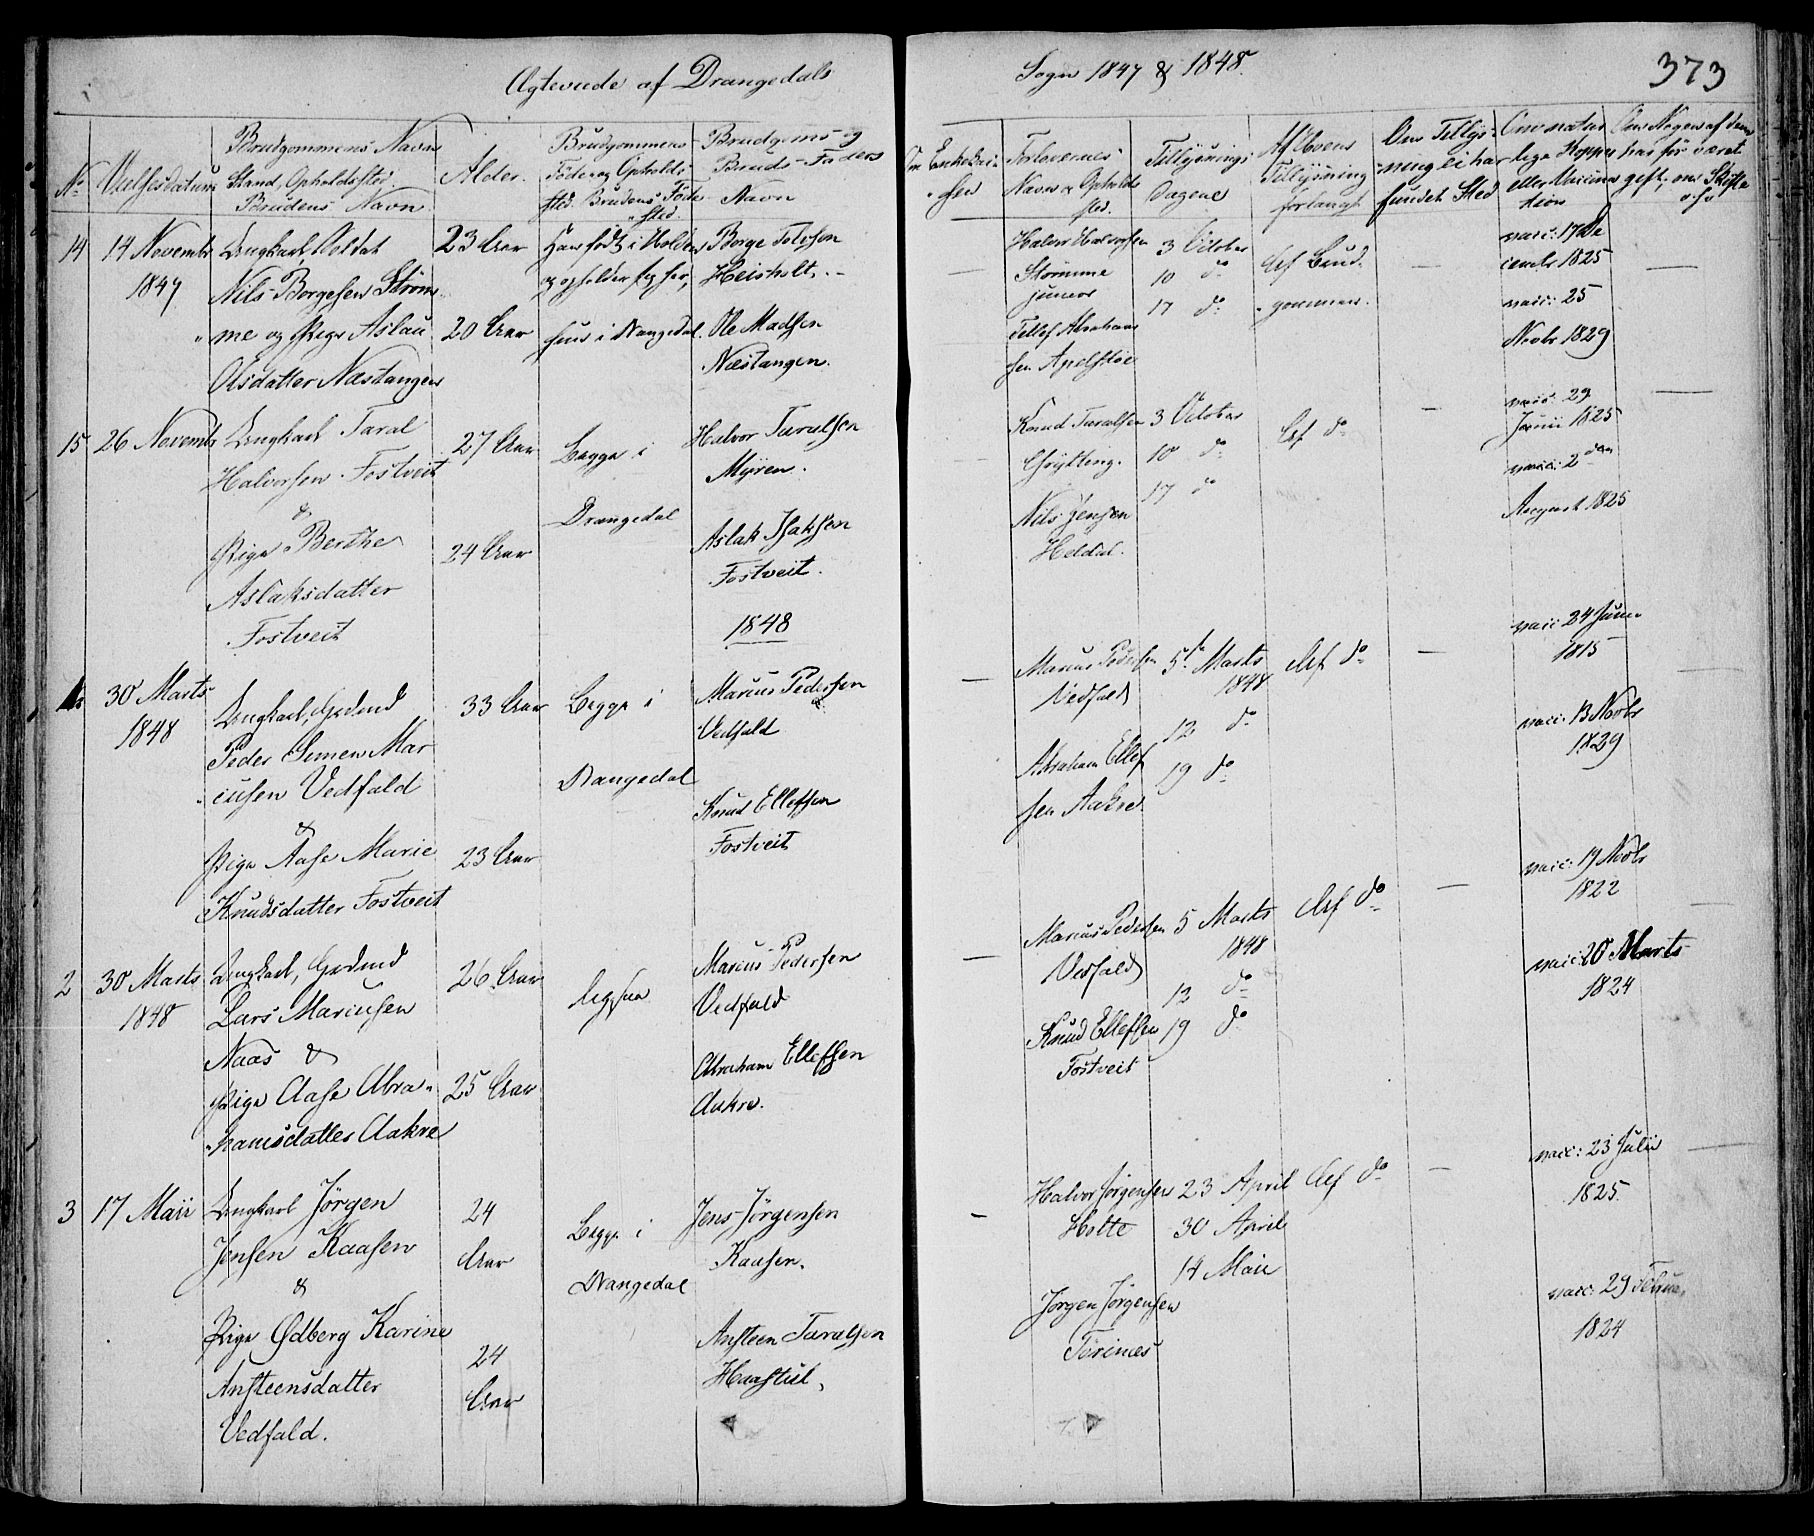 Ægteviede af Drangedals Sogn 1847 & 1848.
373
No
Vielsesdatum
Brudgommens Navn
Stand, Opholdssted.
Brudens Navn.
Alder.
Brudgommens
Føde og Opholds-
sted. Brudens Føde
sted
Brudgoms- og
Bruds-Faders
Navn
Forlovernes
Navn & Opholds
sted.
Tillysnings
Dagene
Af hvem
Tillysning
forlangt
Om Tillys-
ning ei har
fundet Sted
Om natur
lige Kopper
eller Vaccina
tion
Om Nogen af dem
har før været
gift, om Skifte
14
14 Novembr
1847
Ungkarl, Soldat
Nils Borgesen Strøm-
me og Pige Aslau
Olsdatter Næstangen
23 Aar
20 Aar
Han født i Holden
og opholder sig her,
hun i Drangedal.
Borge Tolefsen
Heisholt.
Ole Madsen
Næstangen.
Halvor Halvorsen
Strømme
junior
Tellef Abraham
sen Apelstøe
3 October
10 do
17 do
Af Brud-
gommen.
vacc: 17 De
cembr 1825
vacc: 25
Novbr 1829
15
26 Novembr
Ungkarl Taral
Halvorsen Fostveit
&
Pige Berthe
Aslaksdatter
Fostveit
27 Aar
24 Aar
Begge i
Drangedal
Halvor Taralsen
Myren.
Aslak Isaksen
Fostveit.
Knud Taralsen
Nils Jensen
Heldal.
3 October
10 do
17 do
Af do
vacc: 29
Junii 1825
vacc: 2den
August 1825
1848
1
30 Marts
1848
Ungkarl, Gaardmd
Peder Simen Mar
cusen Vedfald
&
Pige Aase Marie
Knudsdatter Fostveit
33 Aar
23 Aar
Begge i
Drangedal
Marcus Pedersen
Vedfald
Knud Ellefsen
Fostveit
Marcus Pedersen
Vedfald
Abraham Ellef
sen Aakre
5te Marts
1848
12 do
19 do
Af do
vacc: 24 Juni
1815
vacc: 13 Novbr
1829
2
30 Marts
1848
Ungkarl, Gaardmd
Lars Marcusen
Naas &
Pige Aase Abra-
hamsdatter Aakre
26 Aar
25 Aar
ligesaa
Marcus Pedersen
Vedfald
Abraham Ellefsen
Aakre.
Marcus Pedersen
Vedfald
Knud Ellefsen
Fostveit
5 Marts
1848
12 do
19 do
Af do
vacc: 19 Novbr
1822
vacc: 20 Marts
1824
3
17 Maii
Ungkarl Jørgen
Jensen Kaasen
&
Pige Ødberg Karine
Ansteensdatter
Vedfald.
24
Aar
24
Aar
Begge i
Drangedal
Jens Jørgensen
Kaasen.
Ansteen Taralsen
Halvor Jørgensen
Holte
Jørgen Jørgensen
Tørines
23 April
30 April
14 Maii
Af do
vacc: 23 Julii
1825.
vacc: 29 Februar
1824